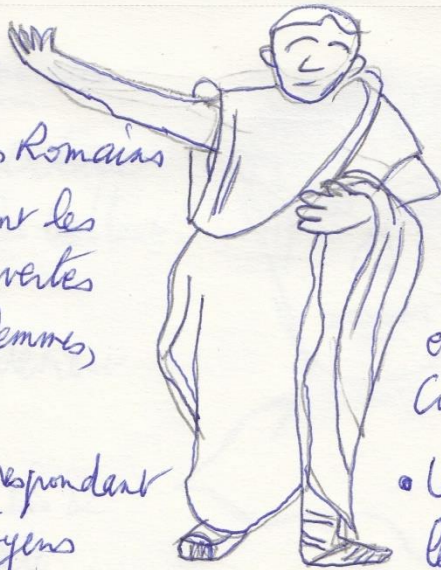 s Romains
nt les
vertes
emmes,
respondant
yens
o
Co
• U
l